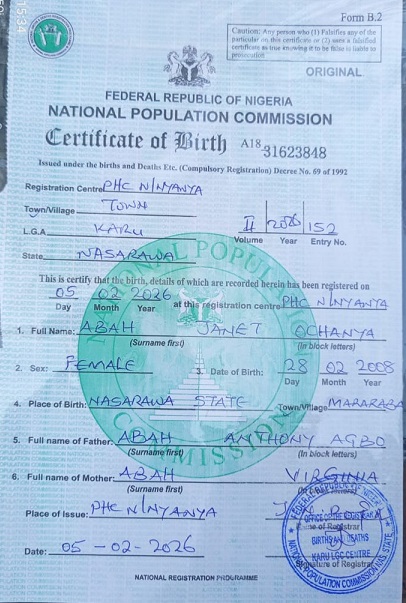 15:34
Form B.2
Caution: Any person who (1) Falsifies any of the
particular on this certificate or (2) uses a falsified
certificate as true knowing it to be false is liable to
prosecution
ORIGINAL
FEDERAL REPUBLIC OF NIGERIA
NATIONAL POPULATION COMMISSION
Certificate of Birth A18 31623848
Issued under the births and Deaths Etc. (Compulsory Registration) Decree No. 69 of 1992
Registration Centre PHC N/NYANYA
Town/Village TOWN
L.G.A KARU II 2026 152
Volume Year Entry No.
State NASARAWA
This is certify that the birth, details of which are recorded herein has been registered on
05 02 2026 at this registration centre PHC N/NYANYA
Day Month Year
1. Full Name: ABAH JANET OCHANYA
(Surname first) (In block letters)
2. Sex: FEMALE 3. Date of Birth: 28 02 2008
Day Month Year
4. Place of Birth: NASARAWA STATE Town/Village MARARABA
5. Full name of Father: ABAH ANTHONY AGBO
(Surname first) (In block letters)
6. Full name of Mother: ABAH VIRGINIA
(Surname first)
Place of Issue: PHC N/NYANYA
Name of Registrar
Date: 05-02-2026
Signature of Registrar
OFFICE OF THE REGISTRAR
BIRTHS AND DEATHS
KARU LGC CENTRE
NATIONAL POPULATION COMMISSION NAS. STATE
FEDERAL REPUBLIC OF NIGERIA
NATIONAL REGISTRATION PROGRAMME
NATIONAL POPULATION COMMISSION